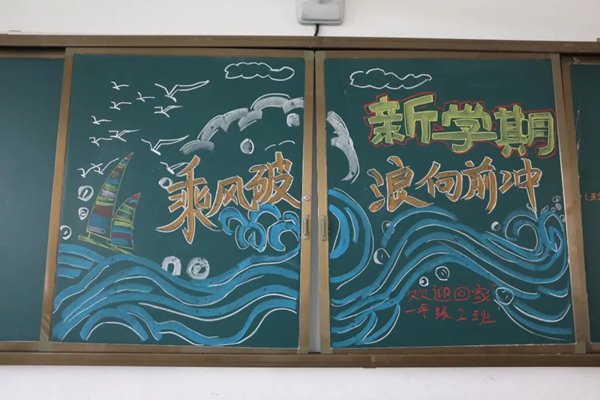 新学期
乘风破浪向前冲
欢迎回家
一年级2班